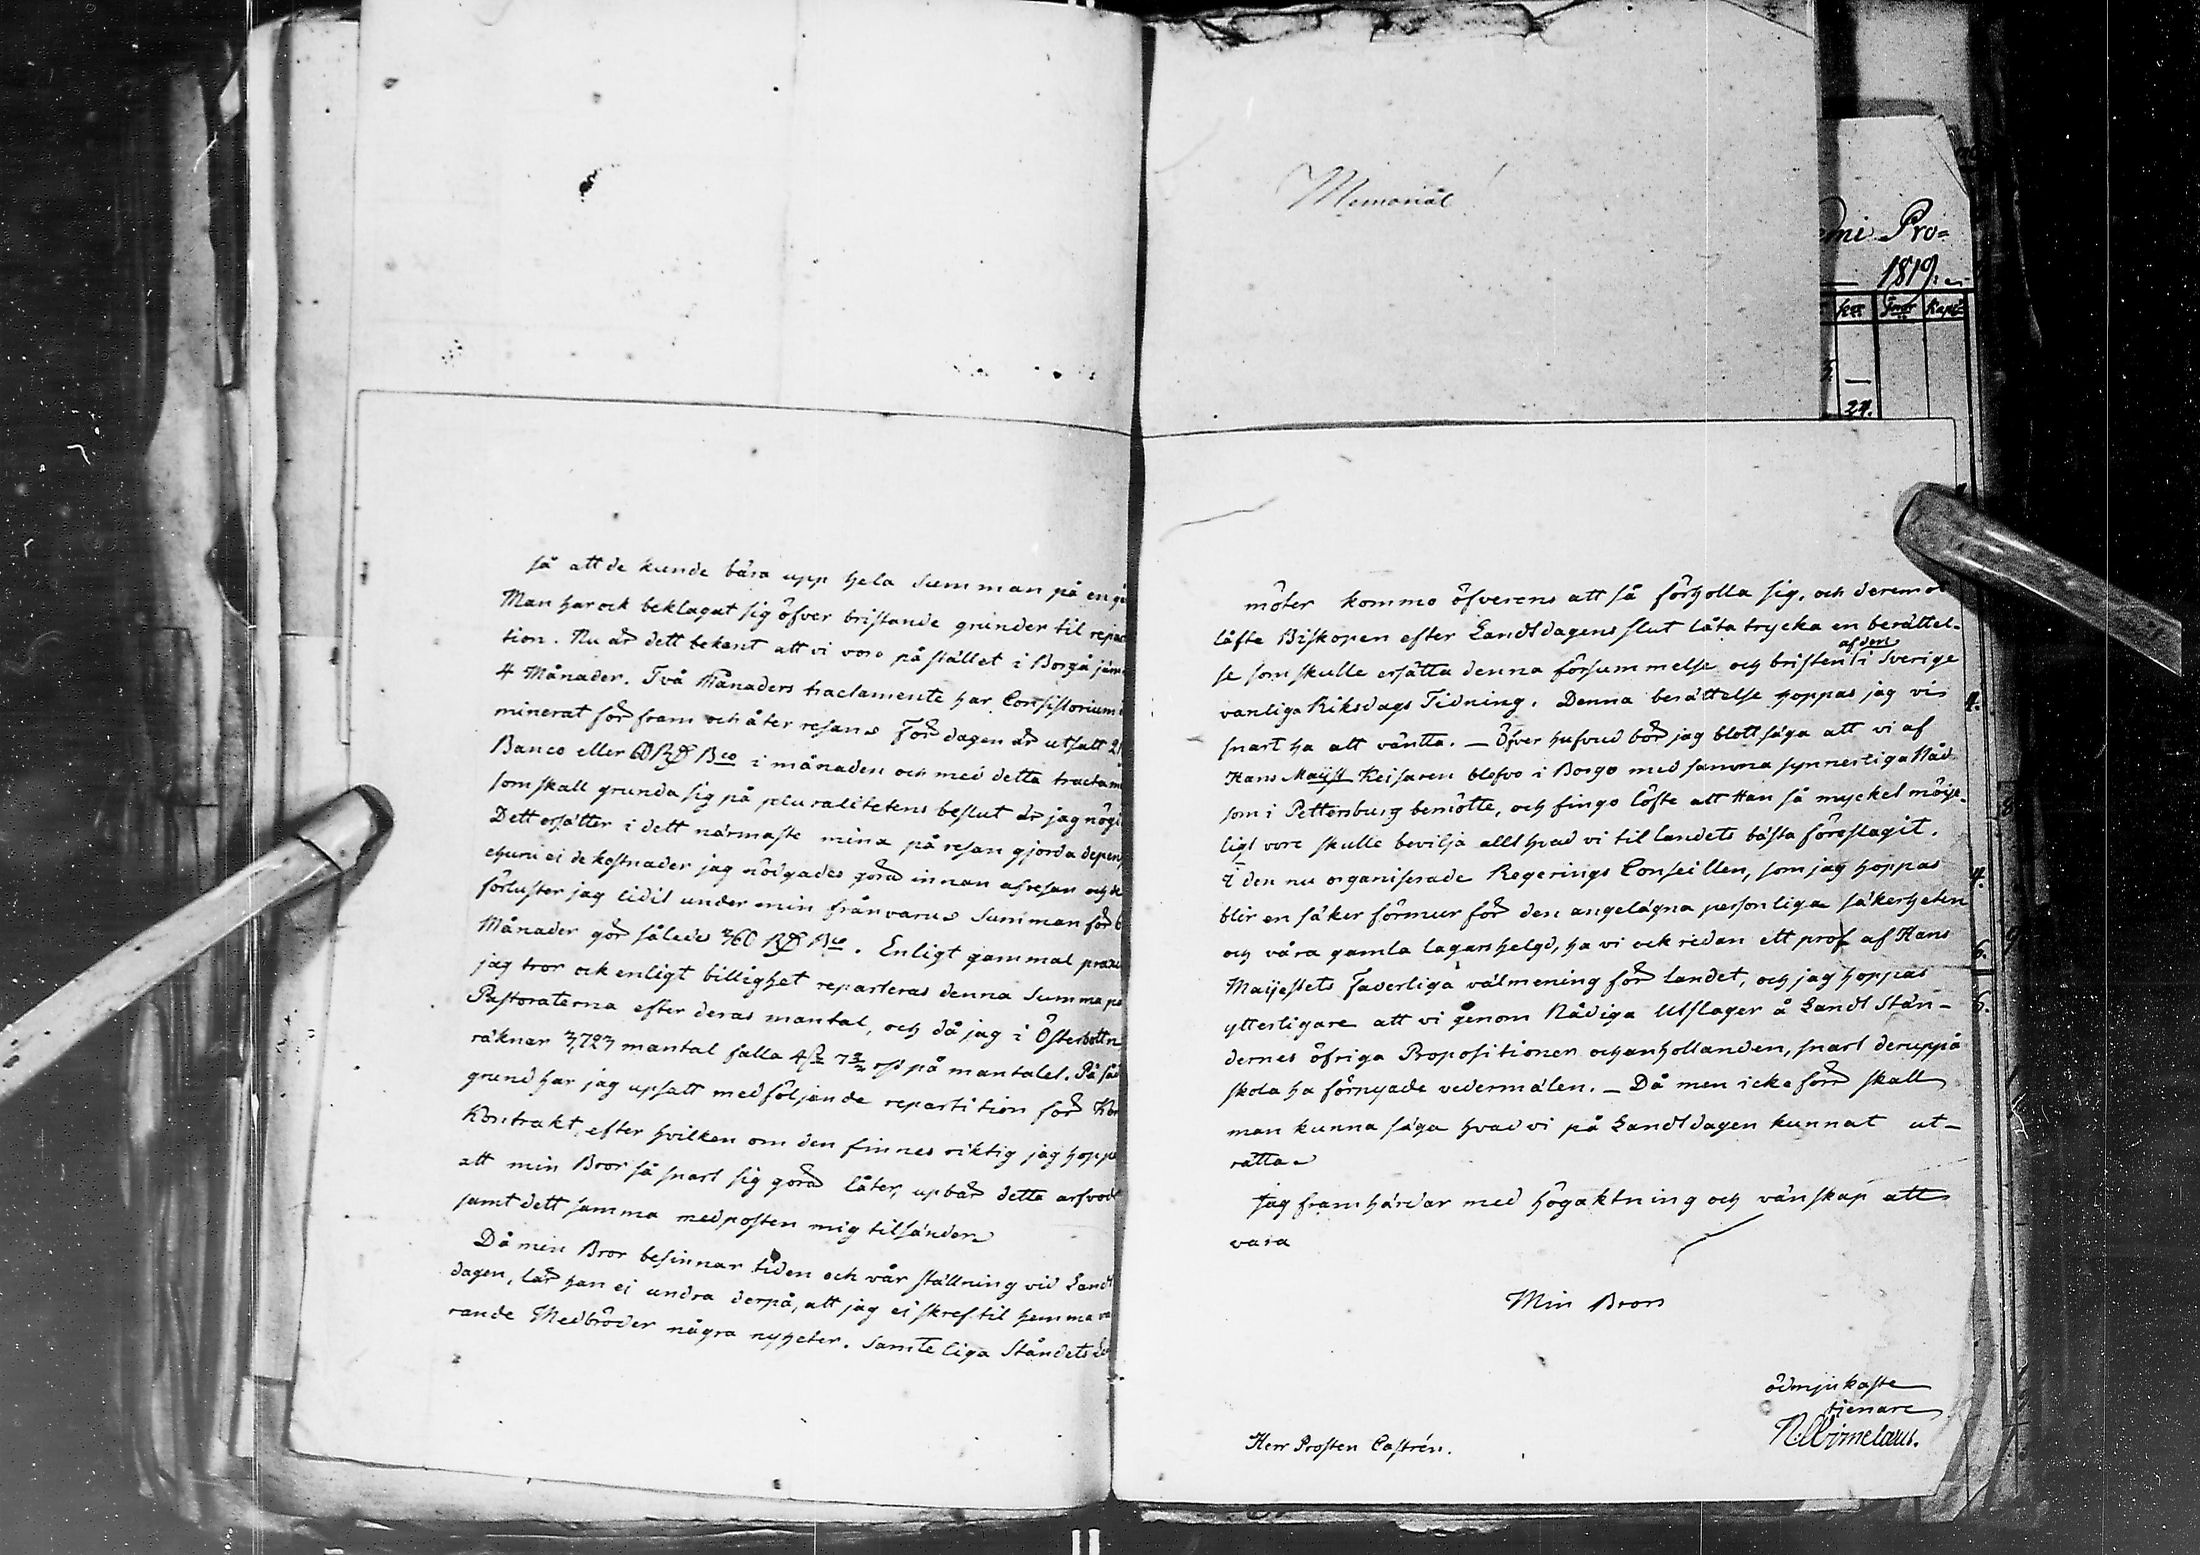 Memorial
emi Pro=
1819:
27.
så att de kunde bära upp hela summan på en gå
Man har ock beklagat sig öfver bristande grunder til repar
tion. Nu är dett bekant att vi voro på stället i Borgå jäm
4 Månader. Två Månaders tractamente har Consistorium
minerat för fram och åter resan. För dagen är utsatt 2
Banco eller 60 Rd Bco i månaden och med detta tractam
som skall grunda sig på pluralitetens beslut är jag nögd
Dett ersätter i dett närmaste mina på resan gjorda depen
ehuru ei de kostnader jag nödgades göra innan afresan och de
förluster jag lidit under min frånvaro. Summan för 6
Månader gör således 360 Rd Bco. Enligt gammal praxi
jag tror ock enligt billighet reparteras denna Summa på
Pastoraterna efter deras mantal, och då jag i Österbottn
räknar 3,723 mantal falla 4 s 7 3/4 rs på mantalet. På så
grund har jag upsatt medföljande repartition för
Kontrakt, efter hvilken om den finnes riktig jag hopp
att min Bror så snart sig göra låter, upbär detta arfvod
samt dett samma med posten mig tilsänden
Då min Bror besinnar tiden och vår ställning vid Landt
dagen, lär han ei undra derpå, att jag ei skref til hemma va
rande Medbröder några nyheter. Samteliga Ståndets
möter kommo öfverens att så förholla sig, och deremot
låfte Biskopen efter Landtdagens slut låta trycka en berättel-
se som skulle ersätta denna försummelse och bristen af den i Sverige
vanliga Riksdags Tidning. Denna berättelse hoppas jag vi
snart ha att vänta. – Öfver hufvud bör jag blott säga att vi af
Hans Maijst Keisaren blefvo i Borgo med samma synnerliga Nåd
som i Pettersburg bemötte, och fingo löfte att Han så myckel möije-
ligt vore skulle bevilja allt hvad vi til landets bästa föreslagit.
i den nu organiserade Regerings Conseillen, som jag hoppas
blir en säker förmur för den angelägna personliga säkerheten
och våra gamla lagars helgd, ha vi ock redan ett prof af Hans
Maijestets Faderliga välmening för landet, och jag hoppas
ytterligare att vi genom Nådiga Utslager å Landt Stän-
dernes öfriga Propositioner och anhollanden, snart deruppå
skola ha förnyade vedermälen. – Då men icke förr skall
man kunna säga hvad vi på Landtdagen kunnat ut-
rätta
Jag framhärdar med högaktning och vänskap att
vara
Min Brors
ödmjukaste
tjenare
Herr Prosten Castrén.